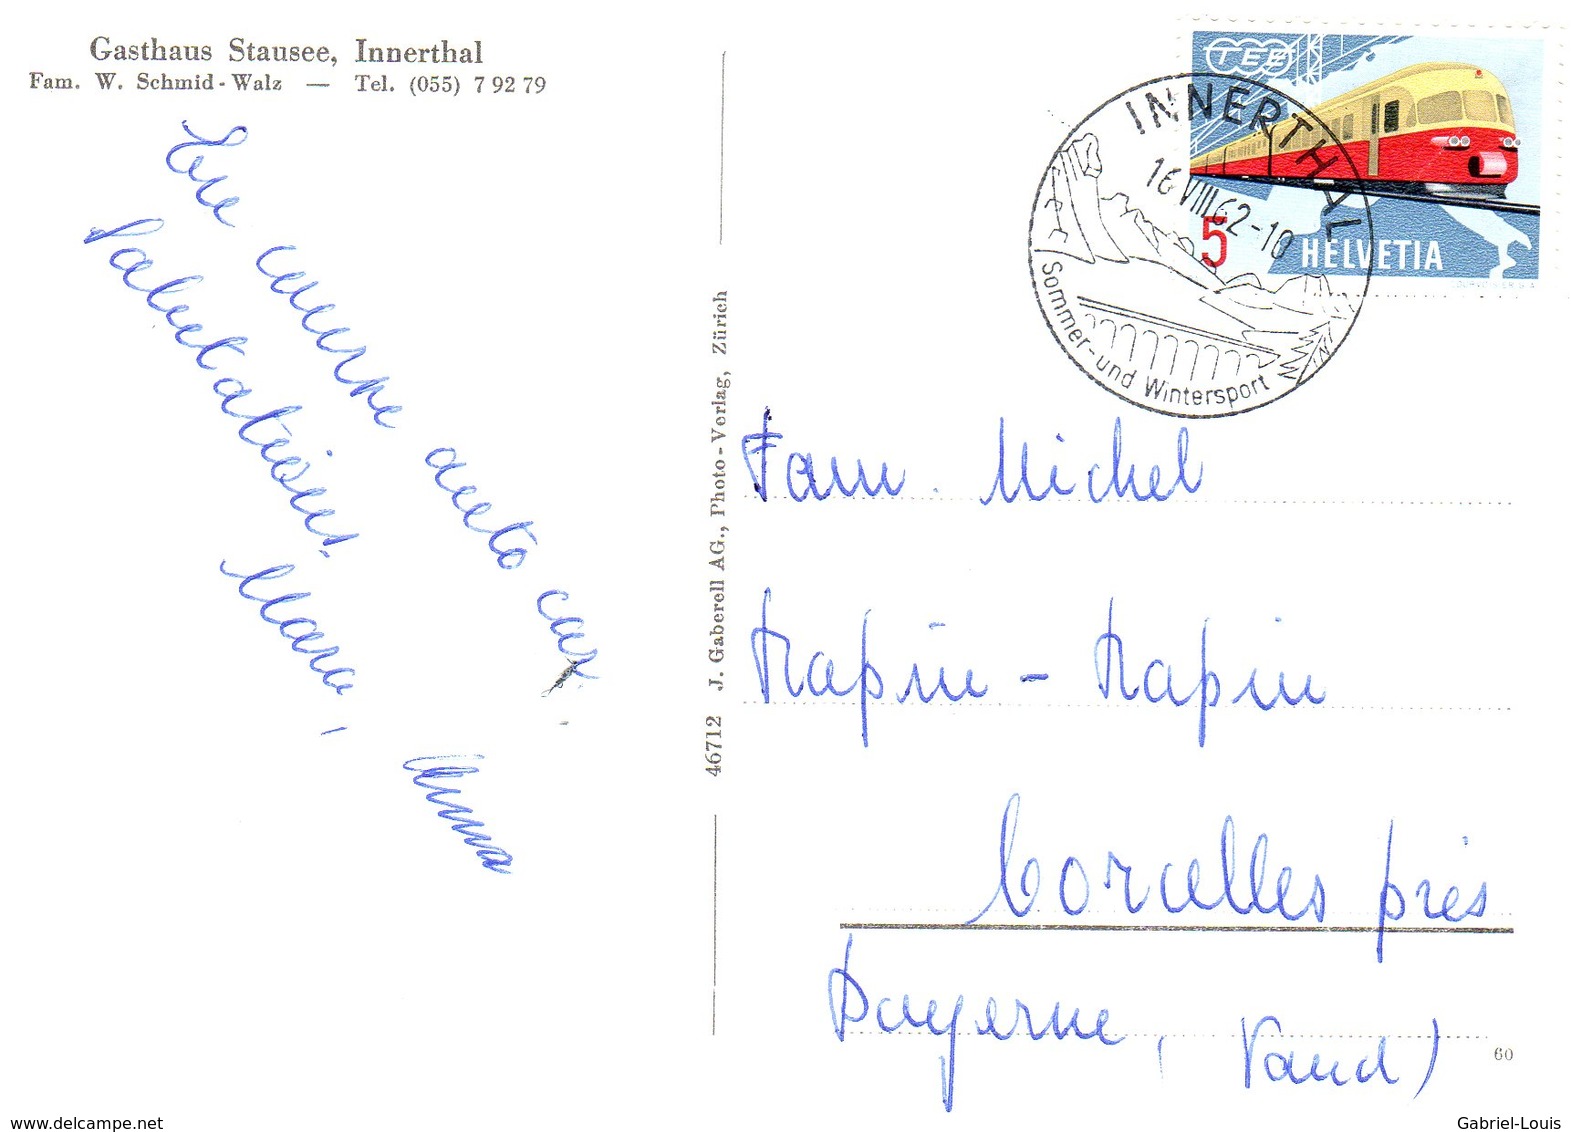 Gasthaus Stausee, Innerthal
Fam. W. Schmid-Walz — Tel. (055) 7 92 79
en course auto car.
Salutations.
Mara,
46712 J. Gaberell AG., Photo-Verlag, Zürich
TEE
5
HELVETIA
INNERTHAL
16 VIII 62-10
Sommer-und Wintersport
Fam. Michel
Rapin - Rapin
Corcelles près
Payerne, Vaud)
60
www.delcampe.net
Gabriel-Louis